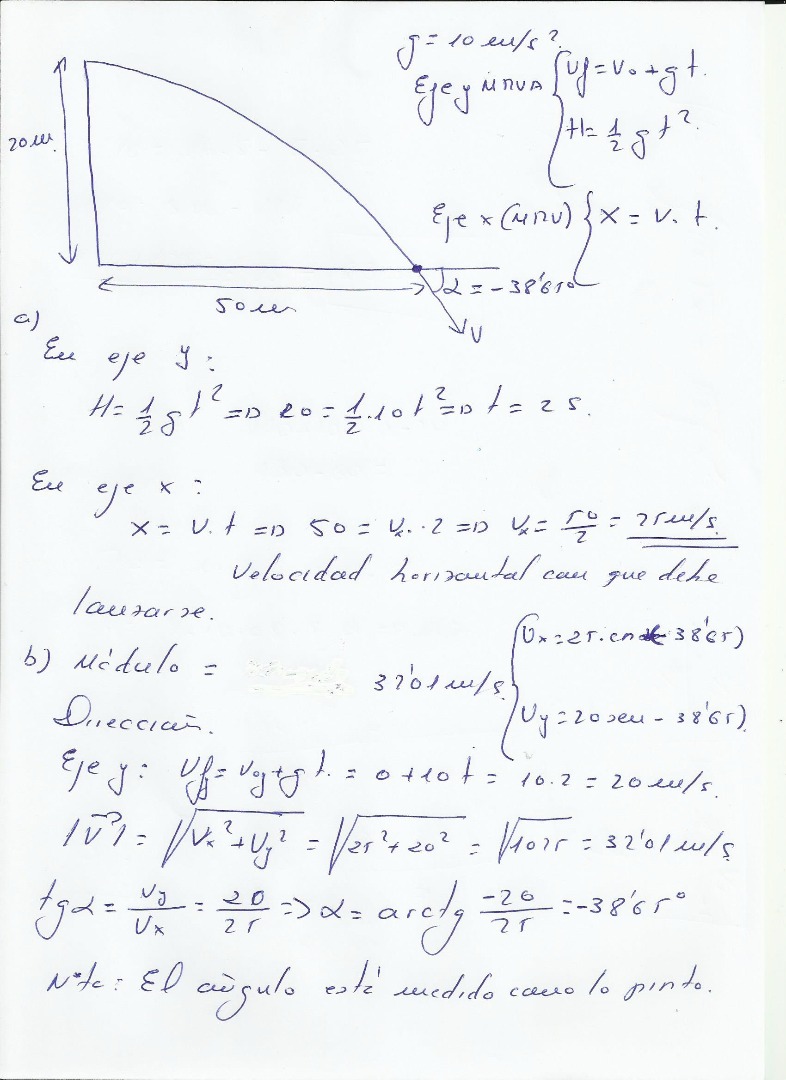 g = 10 m/s².
Eje y MRUA { Vf = Vo + g t.
H = 1/2 g t².
20 m.
Eje x (MRU) { X = V. t.
α = -38'65°
50 m
V
a)
En eje y :
H = 1/2 g t² => 20 = 1/2 . 10 t² => t = 2 s.
En eje x :
x = V. t => 50 = Vx. 2 => Vx = 50/2 = 25 m/s.
Velocidad horizontal con que debe
lanzarse.
b) Módulo = 32'01 m/s. { Vx = 25. cos - 38'65)
Vy = 20 sen - 38'65)
Dirección.
Eje y : Vfy = Voy + g t. = 0 + 10 t = 10. 2 = 20 m/s.
|V| = √Vx² + Vy² = √25² + 20² = √1025 = 32'01 m/s
tg α = Vy/Vx = 20/25 => α = arctg -20/25 = -38'65°
Nota : El ángulo está medido como lo pinto.